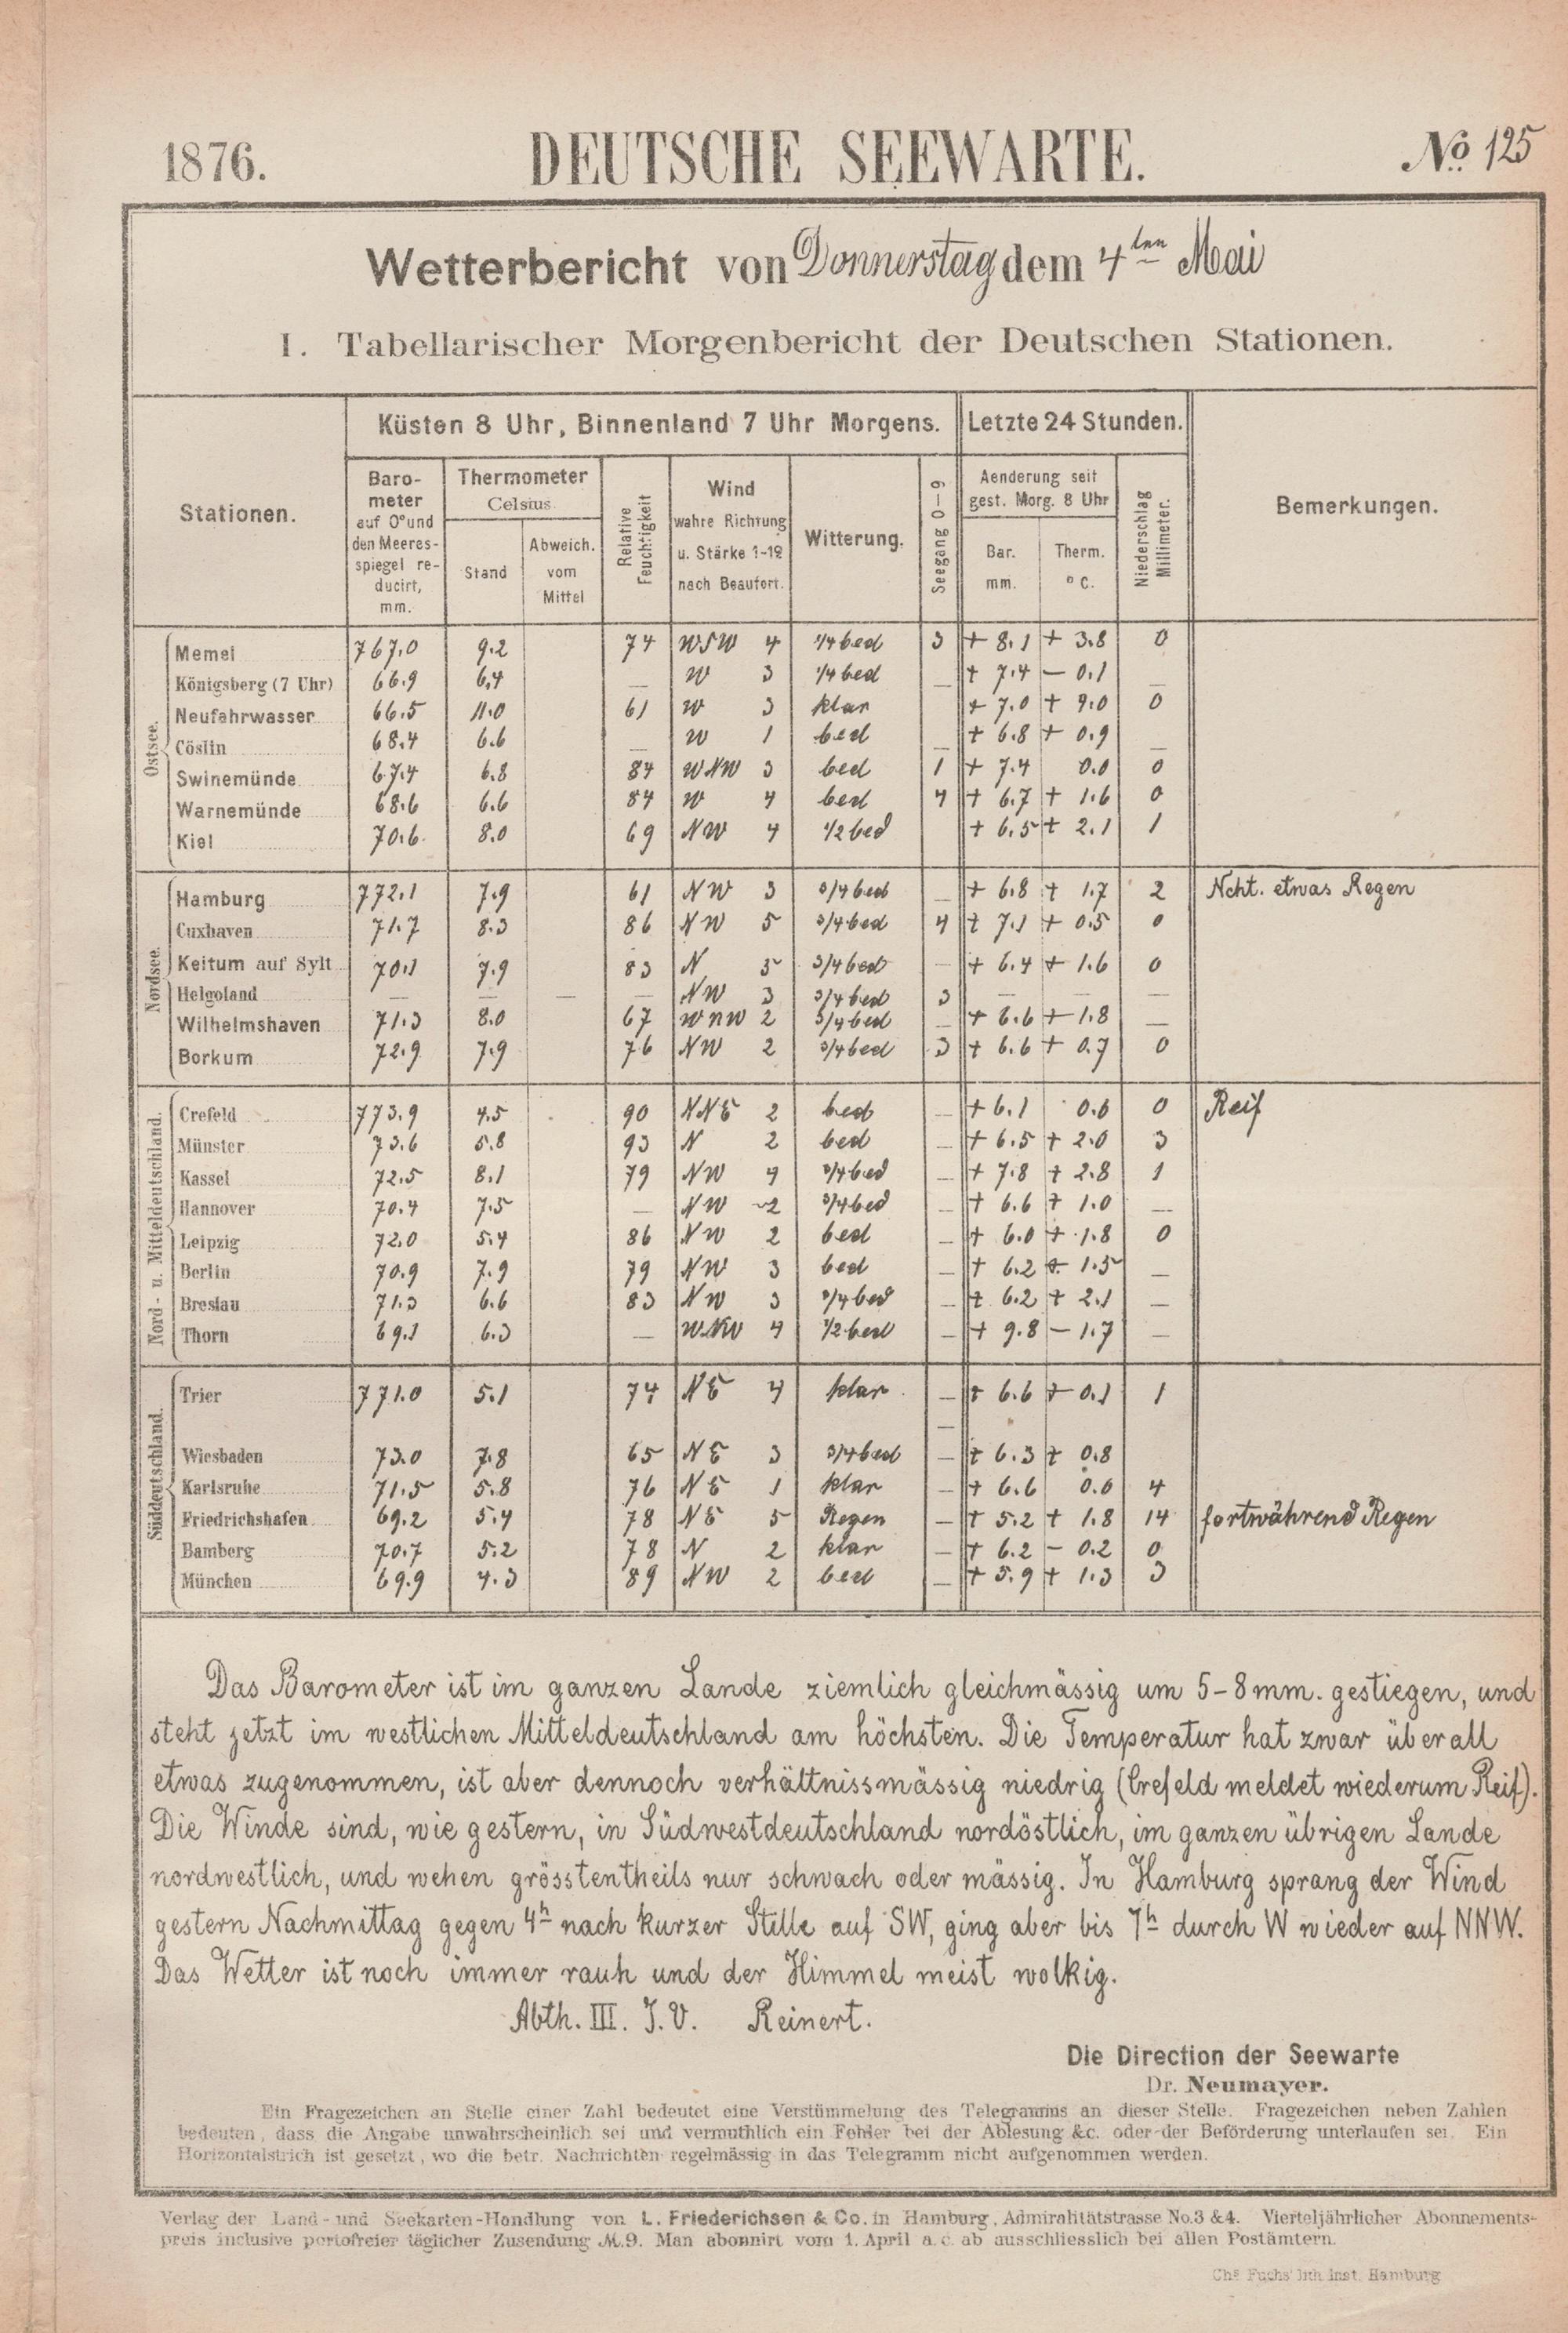 1876. DEUTSCHE SEEWARTE. No. 125
Wetterbericht von Donnerstag dem 4ten Mai
I. Tabellarischer Morgenbericht der Deutschen Stationen.
Stationen.
Küsten 8 Uhr, Binnenland 7 Uhr Morgens.
Letzte 24 Stunden.
Bemerkungen.
Baro-
meter
auf 0° und
den Meeres-
spiegel re-
ducirt,
mm.
Thermometer
Celsius.
Stand
Abweich.
vom
Mittel
Relative
Feuchtigkeit
Wind
wahre Richtung
u. Stärke 1-12
nach Beaufort.
Witterung.
Seegang 0-9
Aenderung seit
gest. Morg. 8 Uhr
Bar.
mm.
Therm.
° C.
Niederschlag
Millimeter.
Ostsee.
Memel 767.0 9.2 74 WSW 4 1/4 bed 3 + 8.1 + 3.8 0
Königsberg (7 Uhr) 66.9 6.4 — W 3 1/4 bed — + 7.4 − 0.1 —
Neufahrwasser 66.5 11.0 61 W 3 klar + 7.0 + 4.0 0
Cöslin 68.4 6.6 — W 1 bed — + 6.8 + 0.9 —
Swinemünde 67.4 6.8 84 WNW 3 bed 1 + 7.4 0.0 0
Warnemünde 68.6 6.6 84 W 4 bed 4 + 6.7 + 1.6 0
Kiel 70.6 8.0 69 NW 4 1/2 bed + 6.5 + 2.1 1
Nordsee.
Hamburg 772.1 7.9 61 NW 3 3/4 bed — + 6.8 + 1.7 2 Ncht. etwas Regen
Cuxhaven 71.7 8.3 86 NW 5 3/4 bed 4 + 7.1 + 0.5 0
Keitum auf Sylt 70.1 7.9 83 N 5 3/4 bed — + 6.4 + 1.6 0
Helgoland — — — — NW 3 3/4 bed 3 — — —
Wilhelmshaven 71.3 8.0 67 WNW 2 3/4 bed — + 6.6 + 1.8 —
Borkum 72.9 7.9 76 NW 2 3/4 bed 3 + 6.6 + 0.7 0
Nord- u. Mitteldeutschland.
Crefeld 773.9 4.5 90 NNE 2 bed — + 6.1 0.0 0 Reif
Münster 73.6 5.8 93 N 2 bed — + 6.5 + 2.0 3
Kassel 72.5 8.1 79 NW 4 3/4 bed — + 7.8 + 2.8 1
Hannover 70.4 7.5 — NW 2 3/4 bed — + 6.6 + 1.0 —
Leipzig 72.0 5.4 86 NW 2 bed — + 6.0 + 1.8 0
Berlin 70.9 7.9 79 NW 3 bed — + 6.2 + 1.5 —
Breslau 71.3 6.6 83 NW 3 3/4 bed — + 6.2 + 2.1 —
Thorn 69.1 6.3 — WNW 4 1/2 bed — + 9.8 − 1.7 —
Süddeutschland.
Trier 771.0 5.1 74 NE 4 klar — + 6.6 + 0.1 1
—
Wiesbaden 73.0 7.8 65 NE 3 3/4 bed — + 6.3 + 0.8
Karlsruhe 71.5 5.8 76 NE 1 klar — + 6.6 0.0 4
Friedrichshafen 69.2 5.4 78 NE 5 Regen — + 5.2 + 1.8 14 fortwährend Regen
Bamberg 70.7 5.2 78 N 2 klar — + 6.2 − 0.2 0
München 69.9 4.3 89 NW 2 bed — + 5.9 + 1.3 3
Das Barometer ist im ganzen Lande ziemlich gleichmässig um 5–8 mm. gestiegen, und
steht jetzt im westlichen Mitteldeutschland am höchsten. Die Temperatur hat zwar überall
etwas zugenommen, ist aber dennoch verhältnissmässig niedrig (Crefeld meldet wiederum Reif).
Die Winde sind, wie gestern, in Südwestdeutschland nordöstlich, im ganzen übrigen Lande
nordwestlich, und wehen grösstentheils nur schwach oder mässig. In Hamburg sprang der Wind
gestern Nachmittag gegen 4h nach kurzer Stille auf SW, ging aber bis 7h durch W wieder auf NNW.
Das Wetter ist noch immer rauh und der Himmel meist wolkig.
Abth. III. J. V. Reinert.
Die Direction der Seewarte
Dr. Neumayer.
Ein Fragezeichen an Stelle einer Zahl bedeutet eine Verstümmelung des Telegramms an dieser Stelle. Fragezeichen neben Zahlen
bedeuten, dass die Angabe unwahrscheinlich sei und vermuthlich ein Fehler bei der Ablesung &c. oder der Beförderung unterlaufen sei. Ein
Horizontalstrich ist gesetzt, wo die betr. Nachrichten regelmässig in das Telegramm nicht aufgenommen werden.
Verlag der Land- und Seekarten-Handlung von L. Friederichsen & Co. in Hamburg, Admiralitätstrasse No. 3 & 4. Vierteljährlicher Abonnements-
preis inclusive portofreier täglicher Zusendung M. 9. Man abonnirt vom 1. April a. c. ab ausschliesslich bei allen Postämtern.
Chs Fuchs' lith. Inst. Hamburg